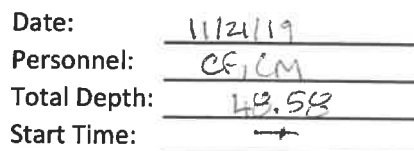 Date: 11/21/19
Personnel: CF, CM
Total Depth: 48.58
Start Time: →